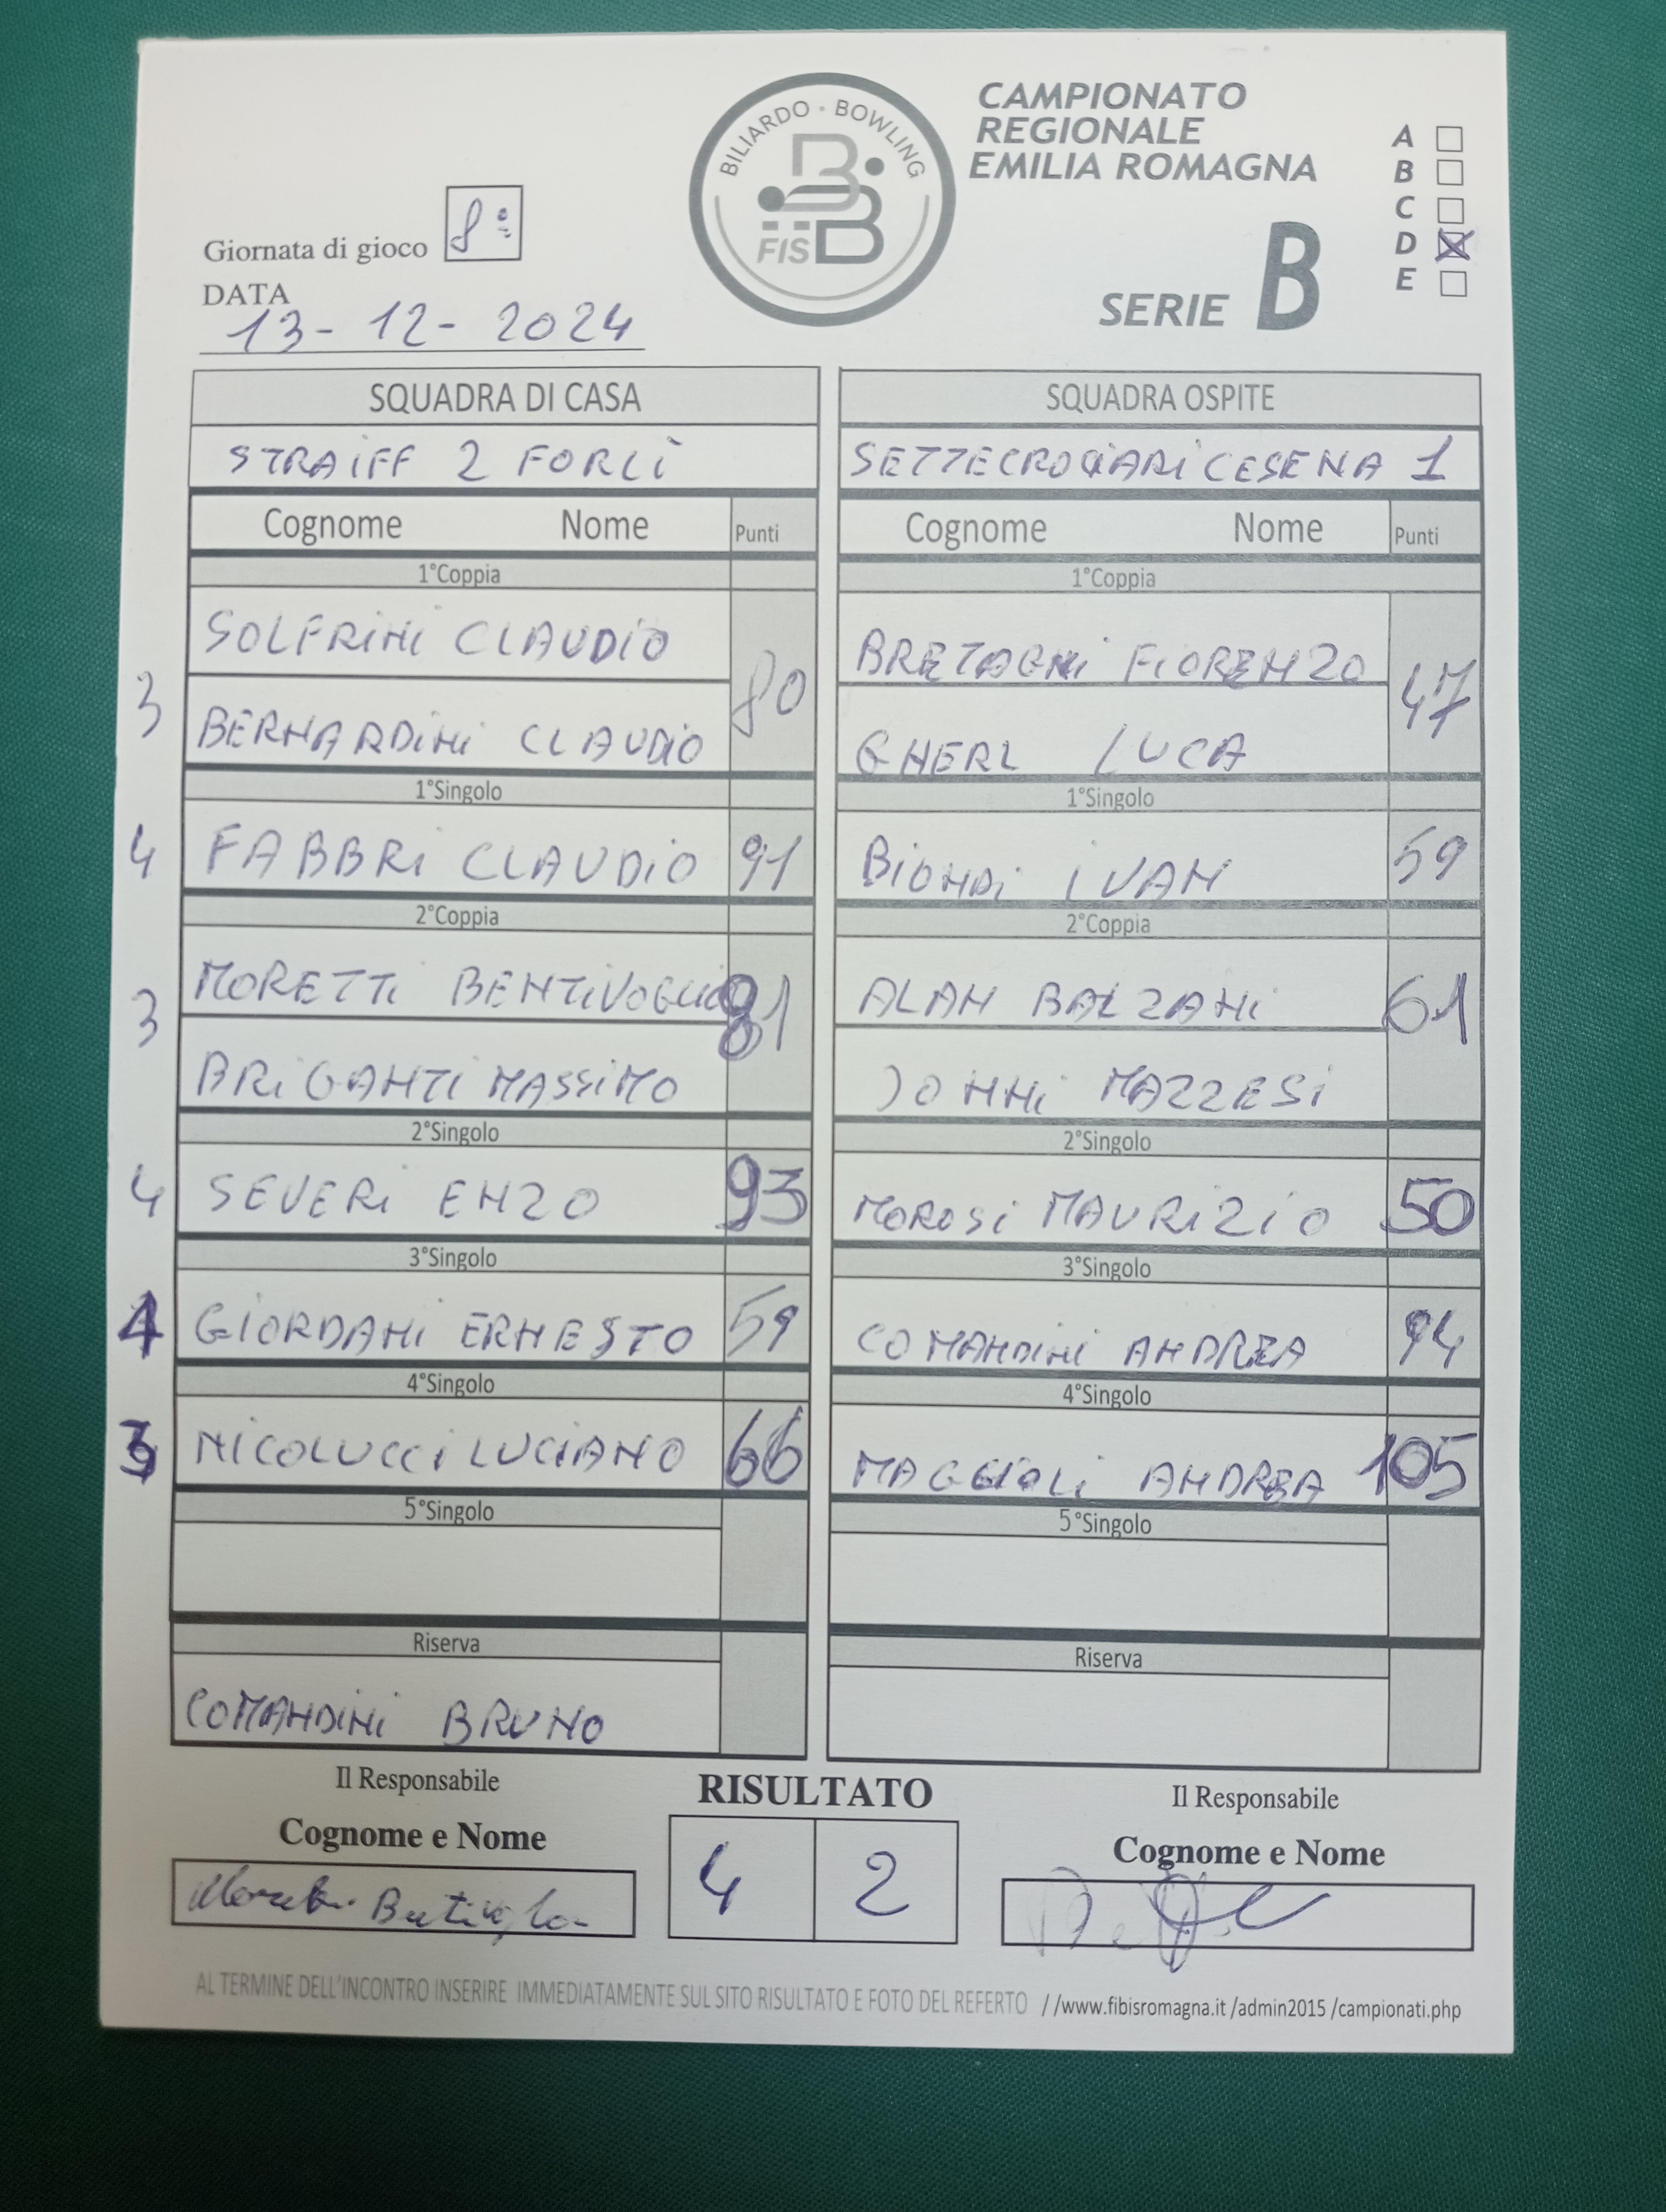 BILIARDO · BOWLING
FISBB
CAMPIONATO
REGIONALE
EMILIA ROMAGNA
SERIE B
A
B
C
D
E
Giornata di gioco 8°
DATA
13-12-2024
SQUADRA DI CASA
STRAIFF 2 FORLÌ
Cognome Nome Punti
1°Coppia
SOLFRINI CLAUDIO
3 80
BERNARDINI CLAUDIO
1°Singolo
4 FABBRI CLAUDIO 91
2°Coppia
MORETTI BENTIVOGLIO
3 81
BRIGANTI MASSIMO
2°Singolo
4 SEVERI ENZO 93
3°Singolo
4 GIORDANI ERNESTO 59
4°Singolo
3 NICOLUCCI LUCIANO 66
5°Singolo
Riserva
COMANDINI BRUNO
SQUADRA OSPITE
SETTECROCIARI CESENA 1
Cognome Nome Punti
1°Coppia
BRETAGNI FIORENZO
47
GHERL LUCA
1°Singolo
BIONDI IVAN 59
2°Coppia
ALAN BALZANI
61
JONNI MAZZESI
2°Singolo
MOROSI MAURIZIO 50
3°Singolo
COMANDINI ANDREA 94
4°Singolo
MAGGIOLI ANDREA 105
5°Singolo
Riserva
Il Responsabile
Cognome e Nome
Moretti Bentivoglio
RISULTATO
4 2
Il Responsabile
Cognome e Nome
AL TERMINE DELL'INCONTRO INSERIRE IMMEDIATAMENTE SUL SITO RISULTATO E FOTO DEL REFERTO //www.fibisromagna.it /admin2015 /campionati.php